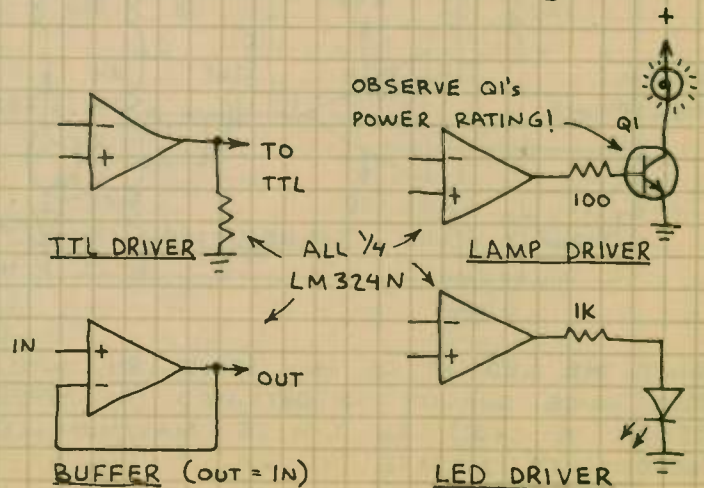 +
OBSERVE Q1's
POWER RATING!
Q1
-
+
TO
TTL
-
+
100
TTL DRIVER
ALL 1/4
LM324N
LAMP DRIVER
IN
+
-
OUT
-
+
1K
BUFFER (OUT = IN)
LED DRIVER